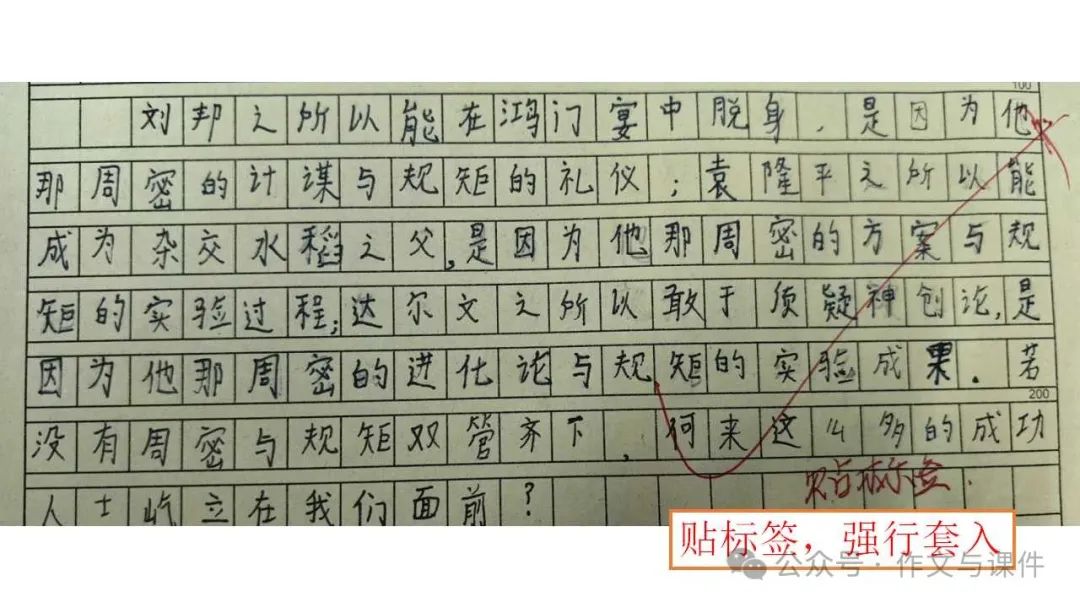 100
刘邦之所以能在鸿门宴中脱身,是因为他
那周密的计谋与规矩的礼仪;袁隆平之所以能
成为杂交水稻之父,是因为他那周密的方案与规
矩的实验过程;达尔文之所以敢于须疑神创论,是
因为他那周密的进化论与规矩的实验成果.若
200
没有周密与规矩双管齐下,何来这么多的成功
人士屹立在我们面前?
贴标签.
贴标签,强行套入
公众号·作文与课件